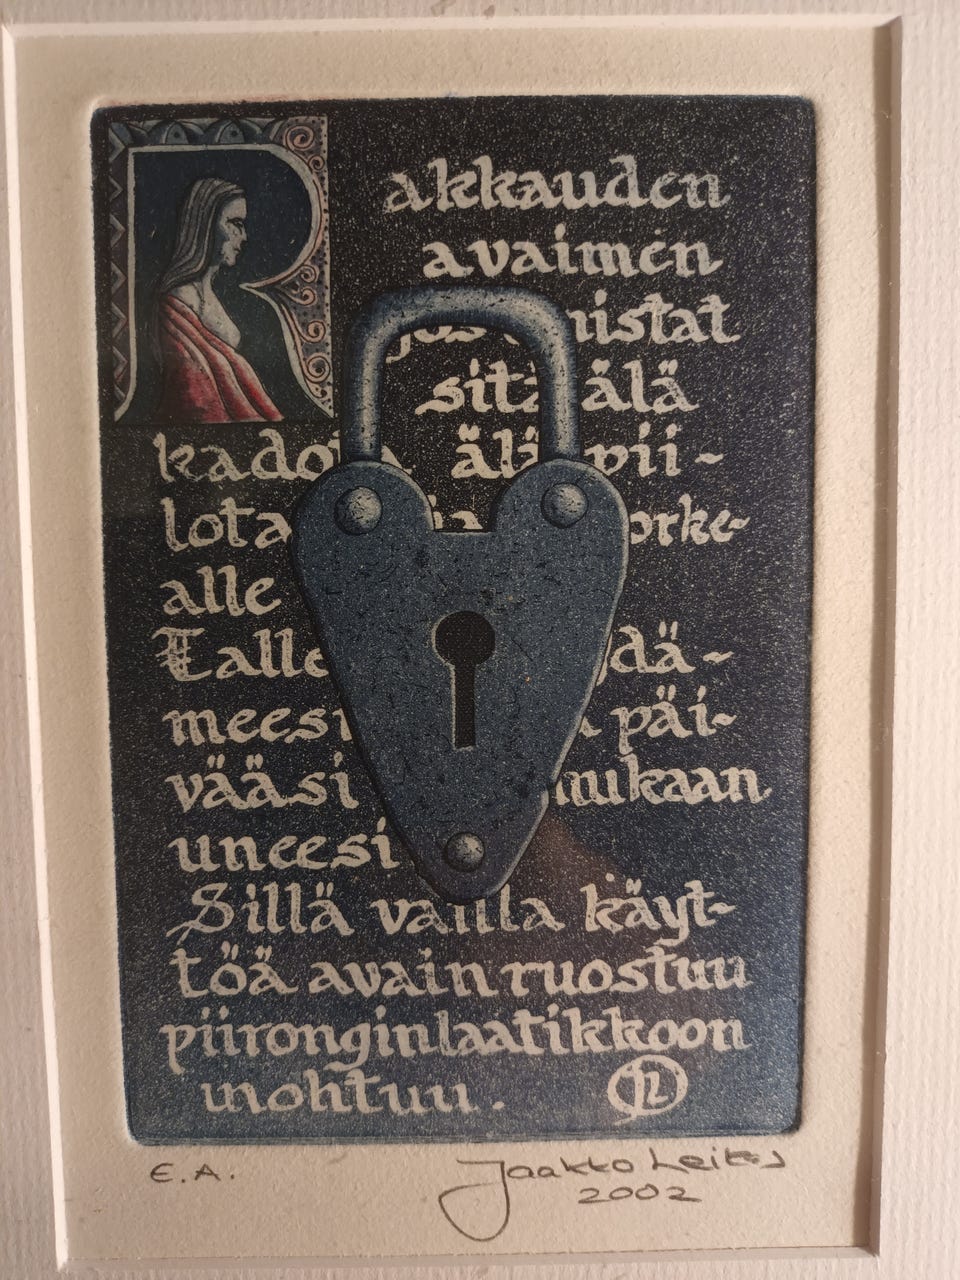 Rakkauden
avaimen
jos omistat
sitä älä
kadota älä pii-
lota orke-
alle
Talle dä-
meesi päi-
vääsi mukaan
uneesi
Sillä vailla käyt-
töä avain ruostuu
piironginlaatikkoon
unohtuu.
E.A. Jaakko Leitas
2002